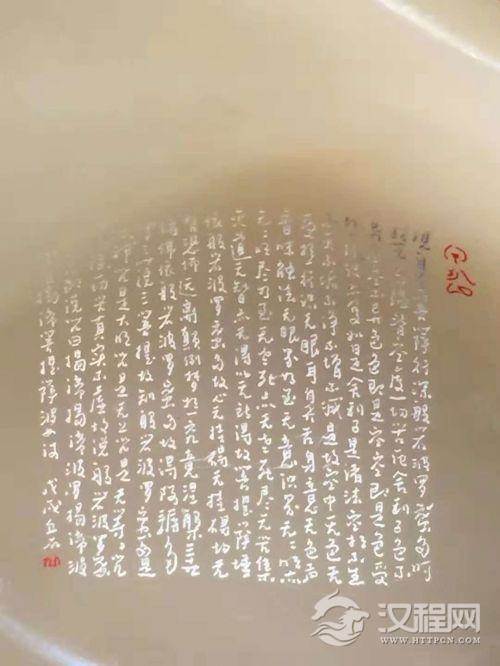 观自在菩萨行深般若波罗蜜多时
照见五蕴皆空度一切苦厄舍利子色不
异空空不异色色即是空空即是色受
想行识亦复如是舍利子是诸法空相不生
不灭不垢不净不增不减是故空中无色无
受想行识无眼耳鼻舌身意无色声
香味触法无眼界乃至无意识界无无明亦
无无明尽乃至无老死亦无老死尽无苦集
灭道无智亦无得以无所得故菩提萨埵
依般若波罗蜜多故心无挂碍无挂碍故无
有恐怖远离颠倒梦想究竟涅槃三世
诸佛依般若波罗蜜多故得阿耨多罗
三藐三菩提故知般若波罗蜜多是
大神咒是大明咒是无上咒是无等等咒
能除一切苦真实不虚故说般若波罗蜜
咒即说咒曰揭谛揭谛波罗揭谛波
罗僧揭谛菩提萨婆诃 戊戌
汉程网
WWW.HTTPCN.COM